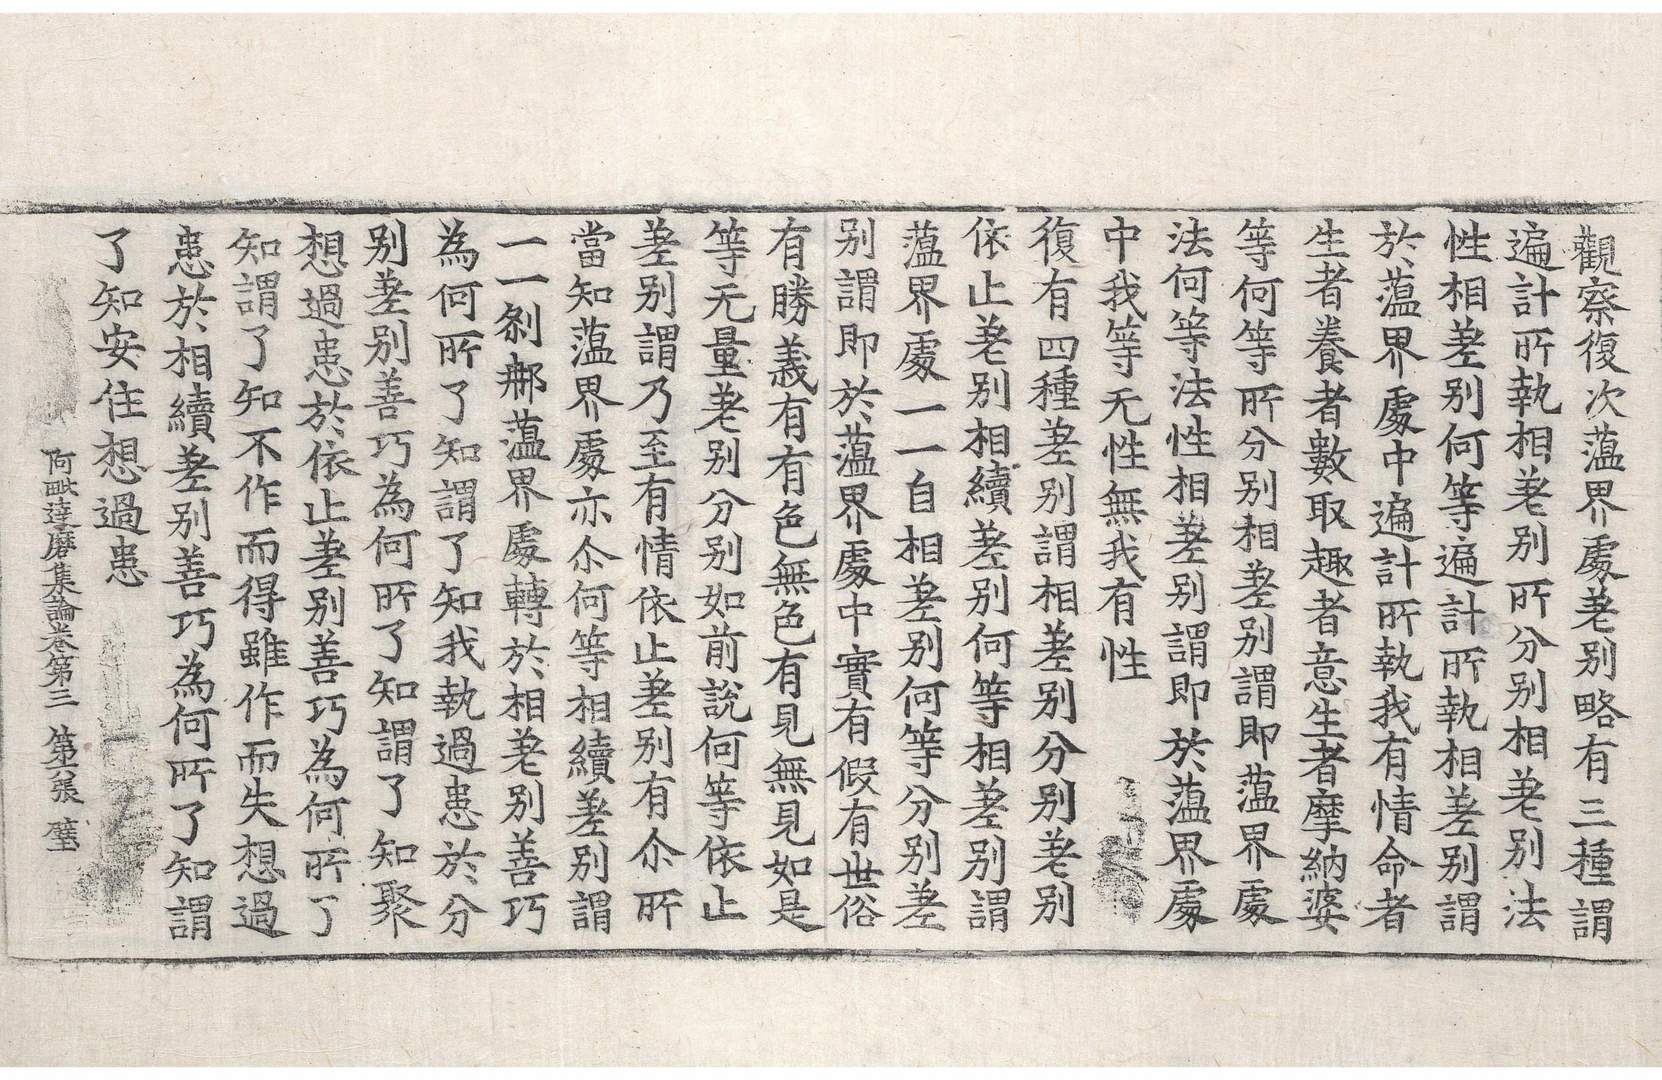 觀察復次薀界處差別略有三種謂
遍計所執相差別所分別相差別法
性相差別何等遍計所執相差別謂
於薀界處中遍計所執我有情命者
生者養者數取趣者意生者摩納婆
等何等所分別相差別謂即薀界處
法何等法性相差別謂即於薀界處
中我等无性無我有性
復有四種差別謂相差別分別差別
依止差別相續差別何等相差別謂
薀界處一一自相差別何等分別差
別謂即於薀界處中實有假有世俗
有勝義有有色無色有見無見如是
等无量差別分別如前說何等依止
差別謂乃至有情依止差別有尒所
當知薀界處亦尒何等相續差別謂
一一刹那薀界處轉於相差別善巧
為何所了知謂了知我執過患於分
別差別善巧為何所了知謂了知聚
想過患於依止差別善巧為何所了
知謂了知不作而得雖作而失想過
患於相續差別善巧為何所了知謂
了知安住想過患
阿毗達磨集論卷第三 第六張 璧